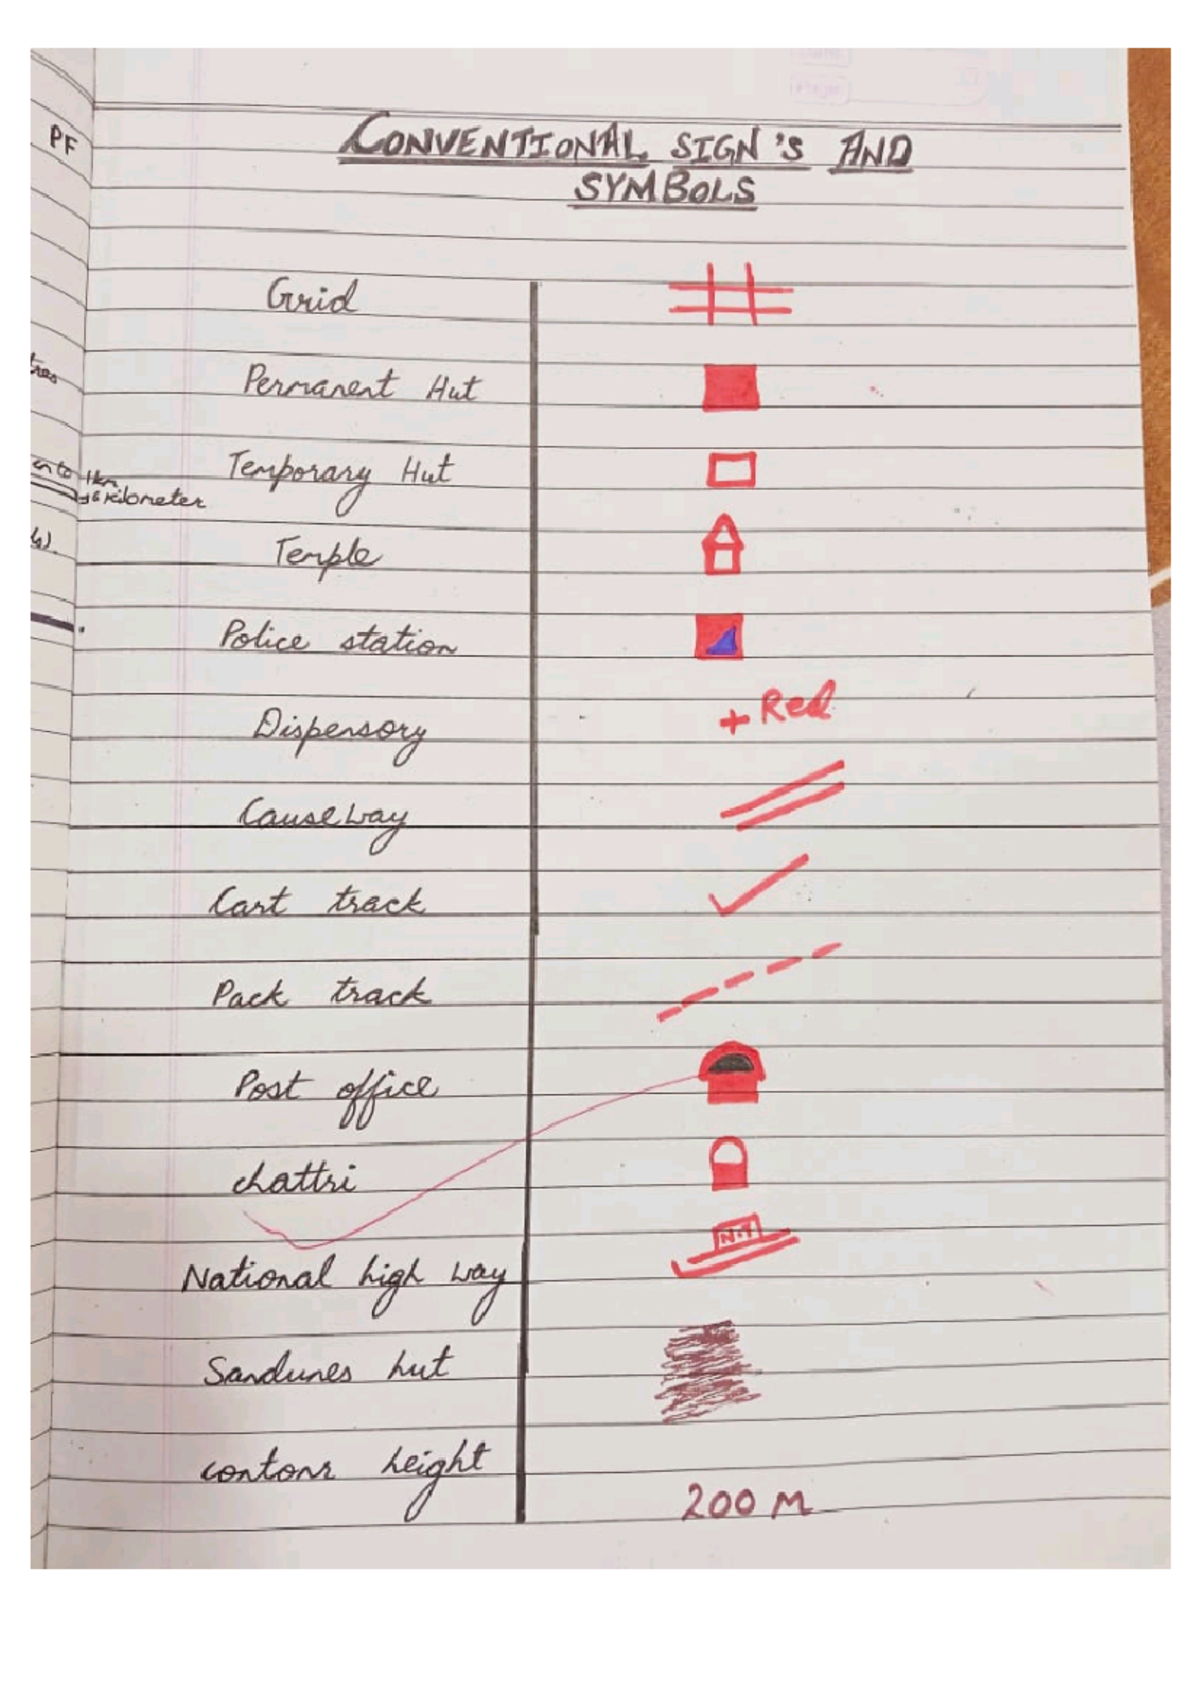 PF
CONVENTIONAL SIGN'S AND
SYMBOLS
Grid
Permanent Hut
Temporary Hut
kilometer
Temple
Police station
Dispensory
+ Red
Causeway
Cart track
Pack track
Post office
chattri
National high way
Sandunes hut
contour height
200 M